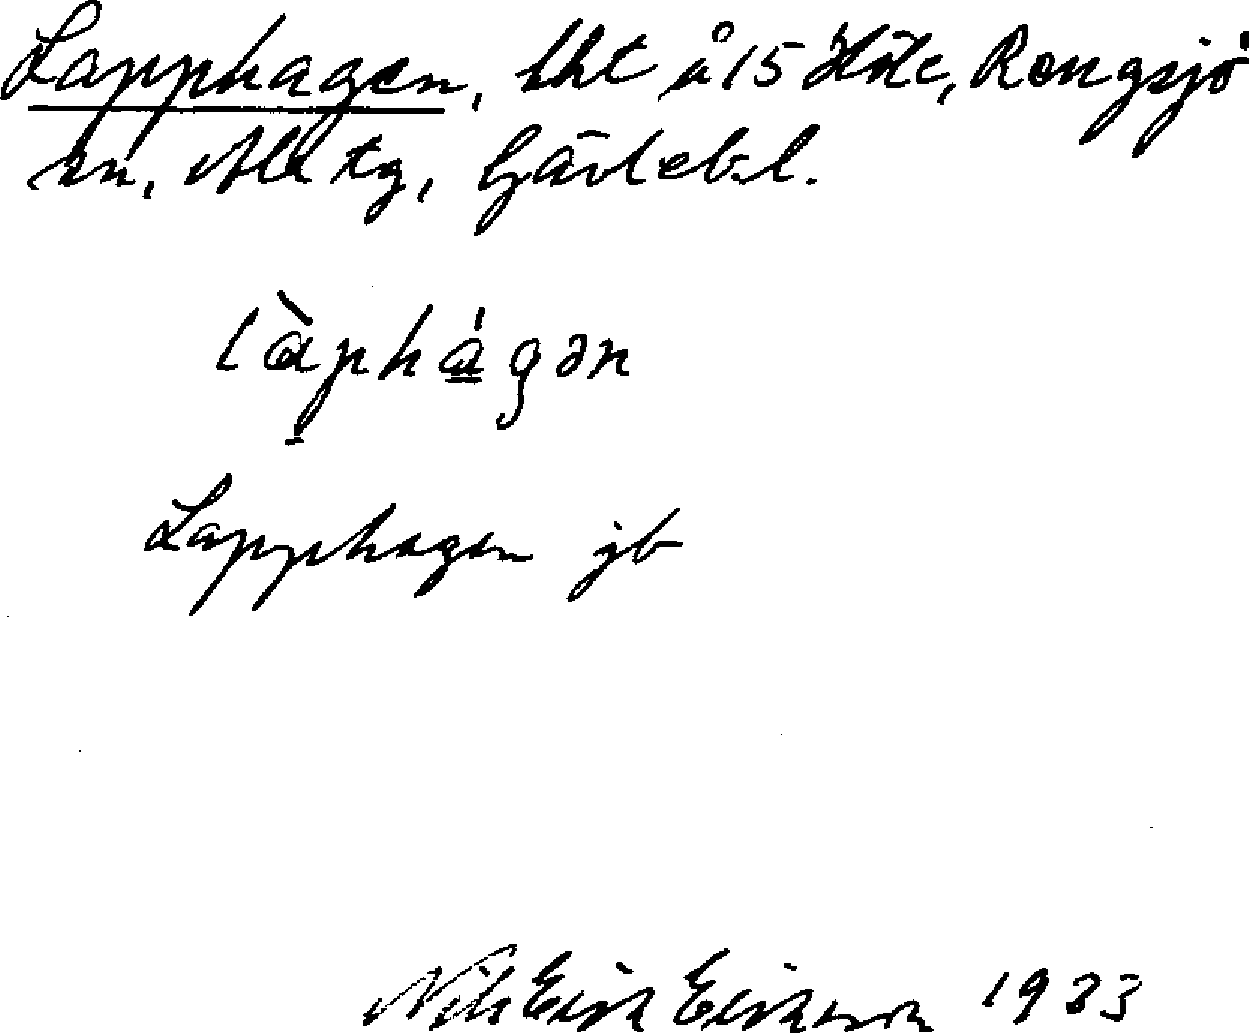 Lapphagen, lht å 15 Höle, Rengsjö
sn, Ala tg, Gävleb.l.
làphágən
Lapphagen jb
Nils Erik Eriksson 1933